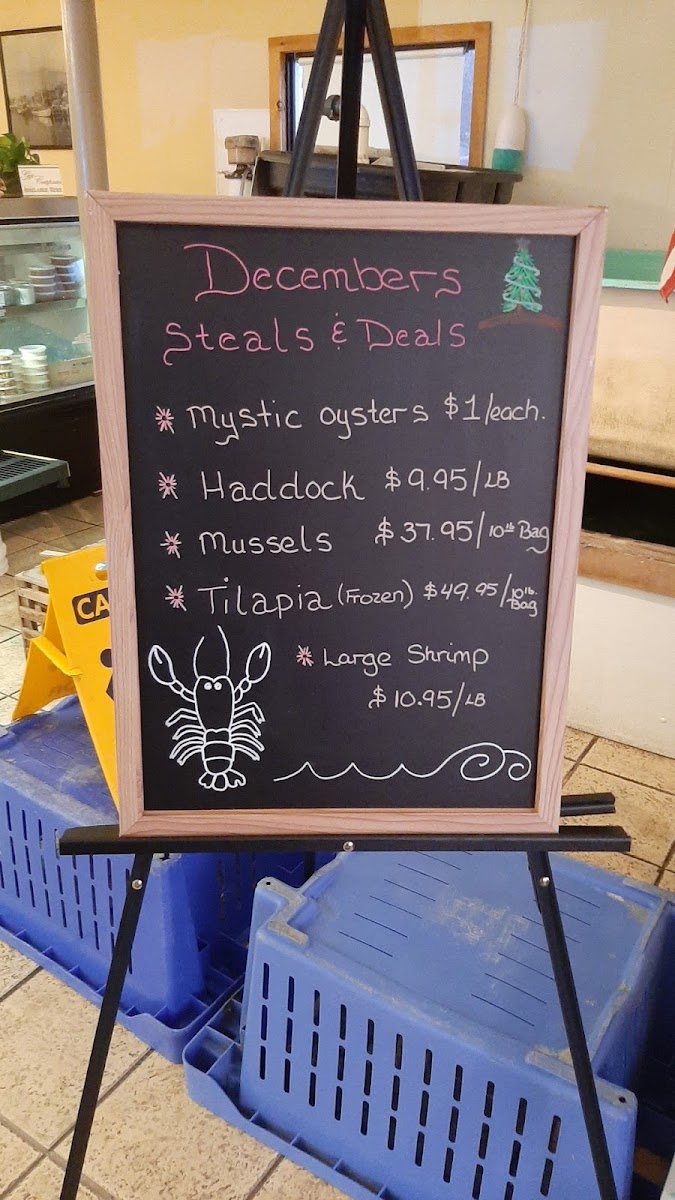 Decembers
Steals & Deals
Mystic oysters $1/each.
Haddock $9.95/LB
Mussels $37.95/10lb Bag
Tilapia (Frozen) $49.95/10lb. Bag
Large Shrimp
$10.95/LB
CA